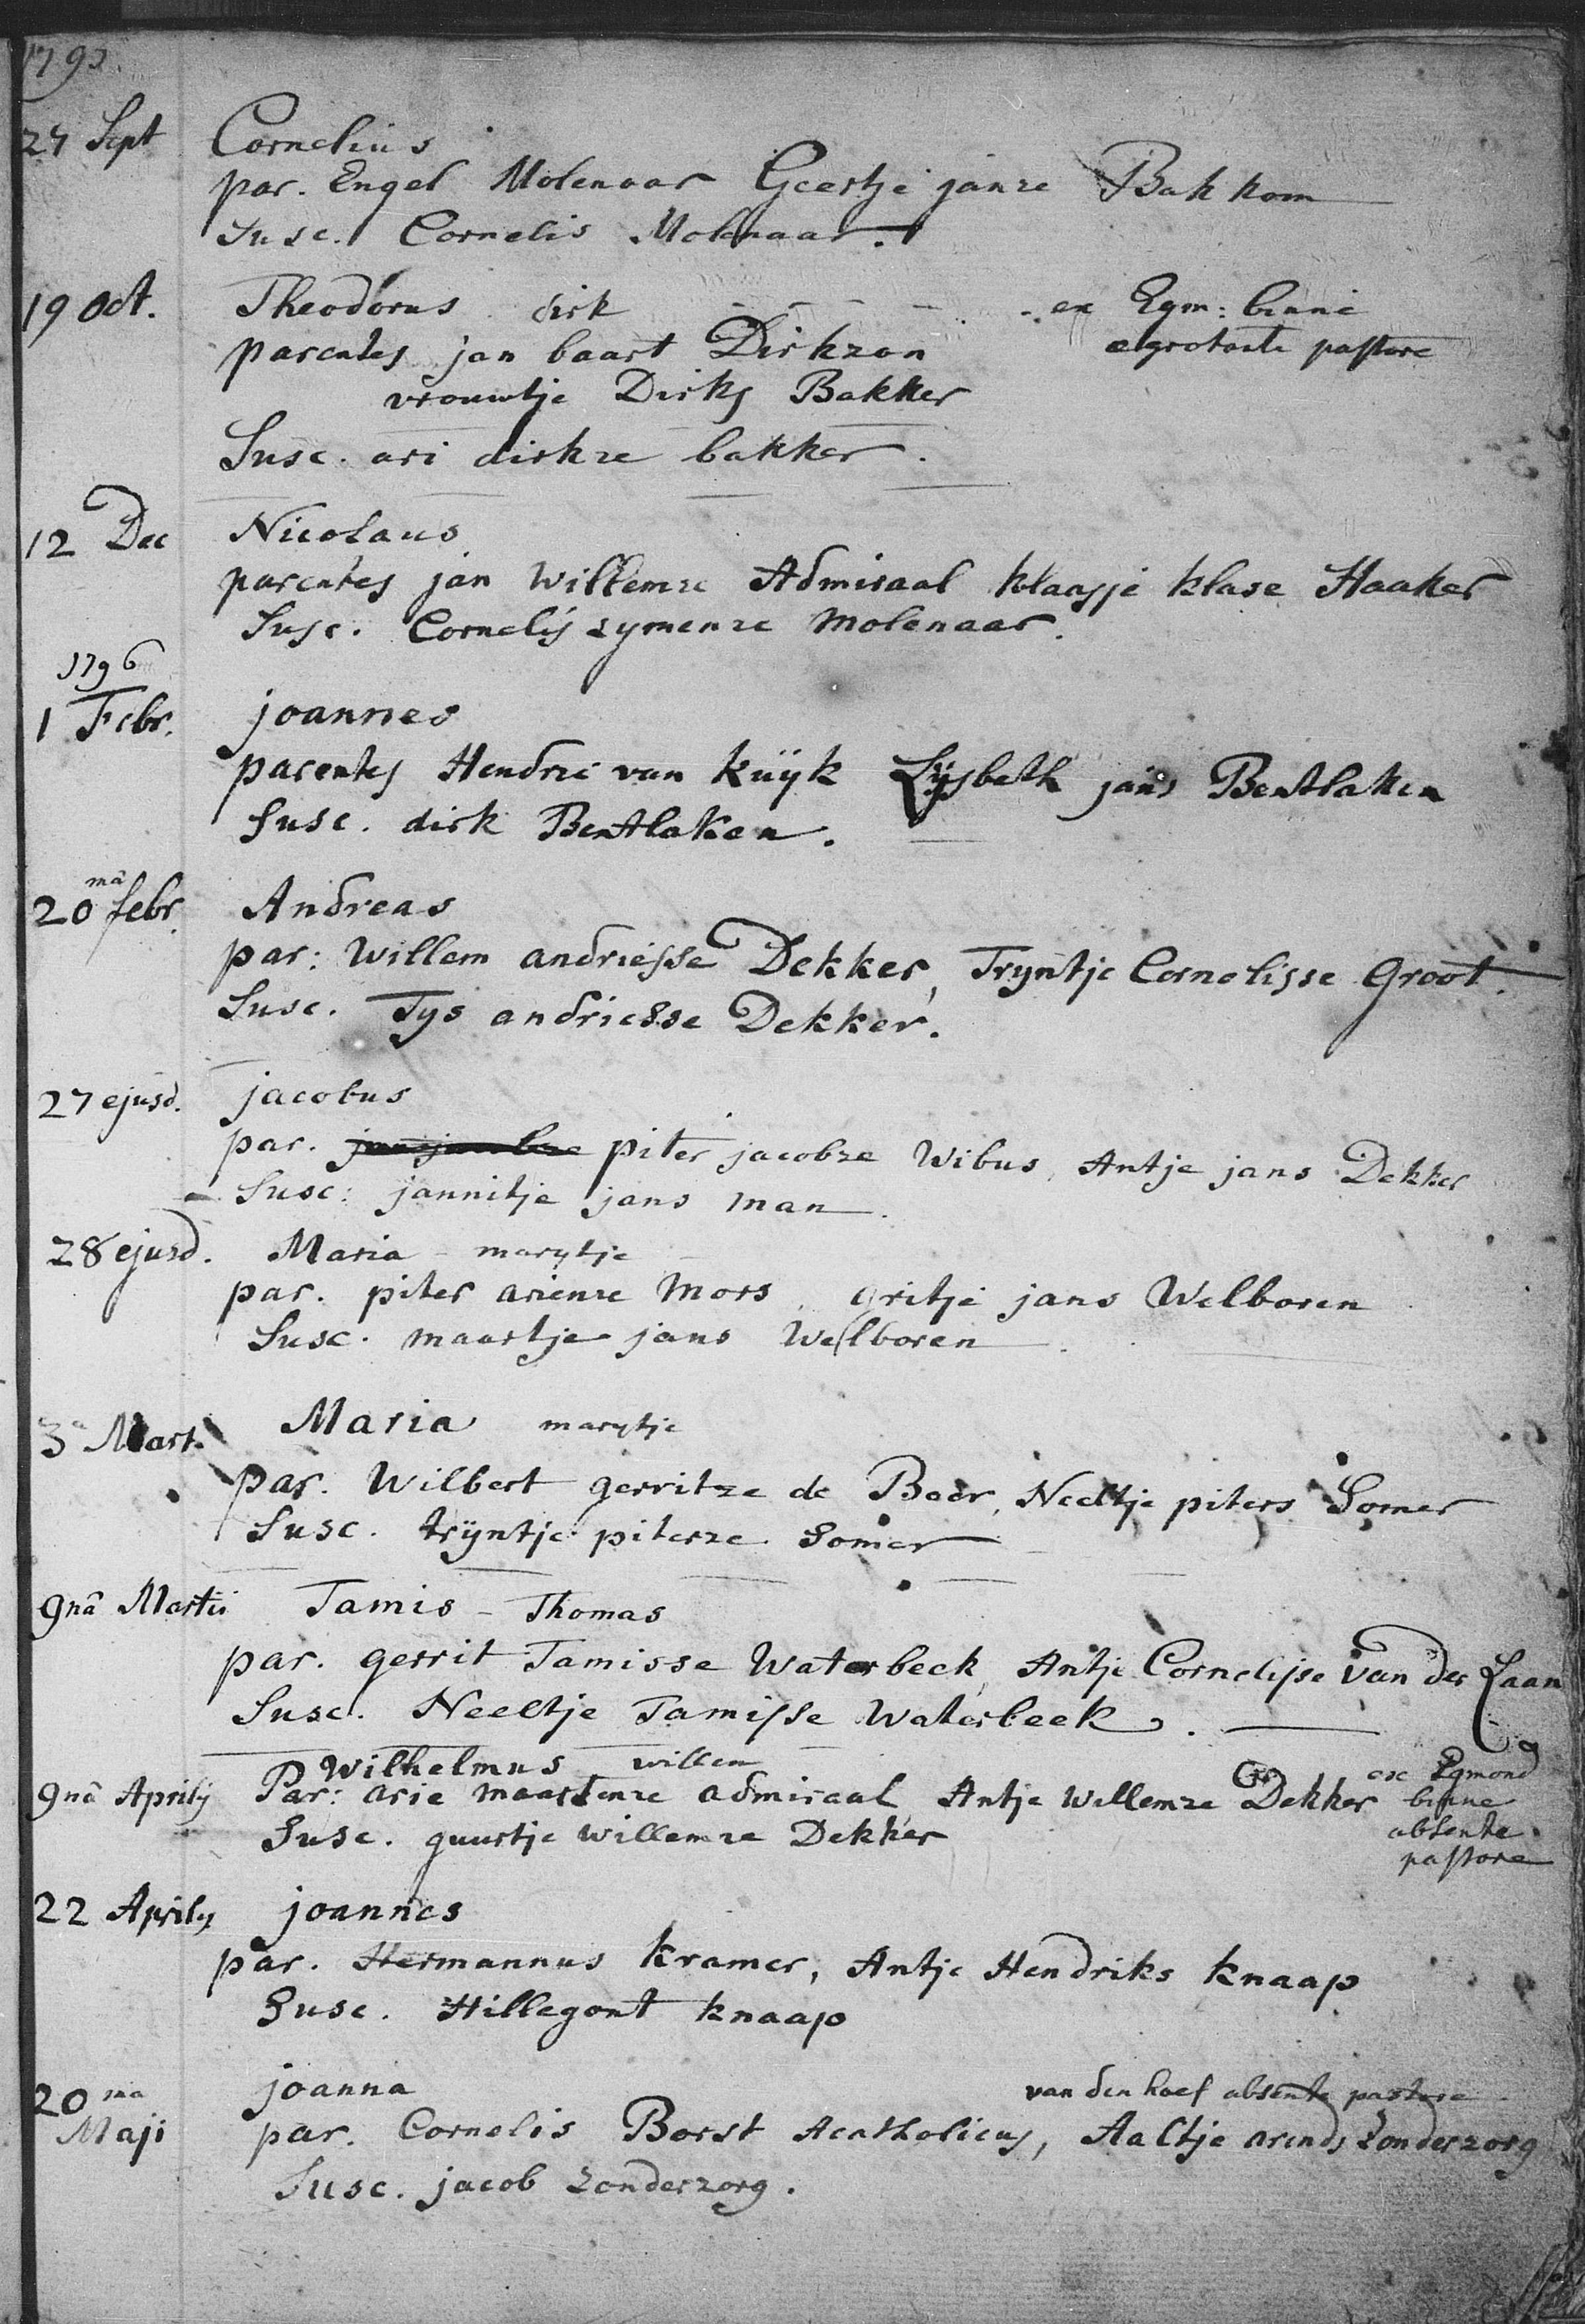 1795.
24 Sept Cornelius
par. Engel Molenaar Geertje janze Bakkom
Susc. Cornelis Molenaar.
19 Oct. Theodorus dirk - - - - ex Egm: binne
parentes jan baart Dirkzon aegrotante pastore
vrouwtje Dirks Bakker
Susc. ari dirkze bakker.
12 Dec Nicolaus
parentes jan Willemze Admiraal klaasje klase Haaker
Susc. Cornelis symenze Molenaar.
1796
1 Febr. joannes
parentes Hendric van Küyk Lÿsbeth jans Bentlaken
Susc. dirk Bentlaken.
20 mâ febr. Andreas
par: Willem andriesse Dekker, Tryntje Cornelisse Groot.
Susc. Tys andriesse Dekker.
27 ejusd. jacobus
par. piter jacobze Wibus, Antje jans Dekker
Susc: jannitje jans man.
28 ejusd. Maria - marytje
par. piter arienze Mors, gritje jans Welboren
Susc. maartje jans Welboren
3 Mart. Maria marytje
par. Wilbert gerritze de Boer, Neeltje piters Somer
Susc. trÿntje piterze Somer
9nâ Martii Tamis - Thomas
par. gerrit Tamisse Waterbeek, Antje Cornelisse van der Laan
Susc. Neeltje Tamisse Waterbeek.
Wilhelmus willem
9nâ Aprilij Par: arie maartenze admiraal Antje Willemze Dekker ex Egmond
binne
Susc. guurtje willemze Dekker absente
pastore
22 Aprily joannes
par. Hermannus Kramer, Antje Hendriks knaap
Susc. Hillegont knaap
20 ma joanna van den hoef absente pastore
Maji par. Cornelis Borst Acatholicus, Aaltje arends Zonderzorg
Susc. jacob zonderzorg.